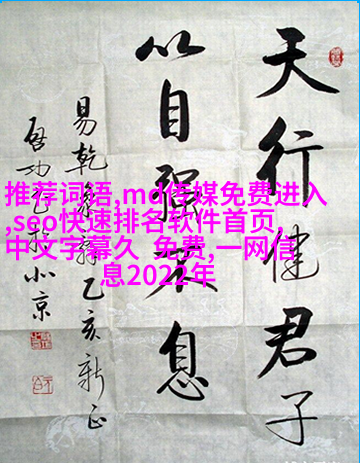 天行健君子
以自强不息
易乾象辞乙亥新正
启功 北京
推荐词语,md传媒免费进入
,seo快速排名软件首页,
中文字幕久 免费,一网信
息2022年